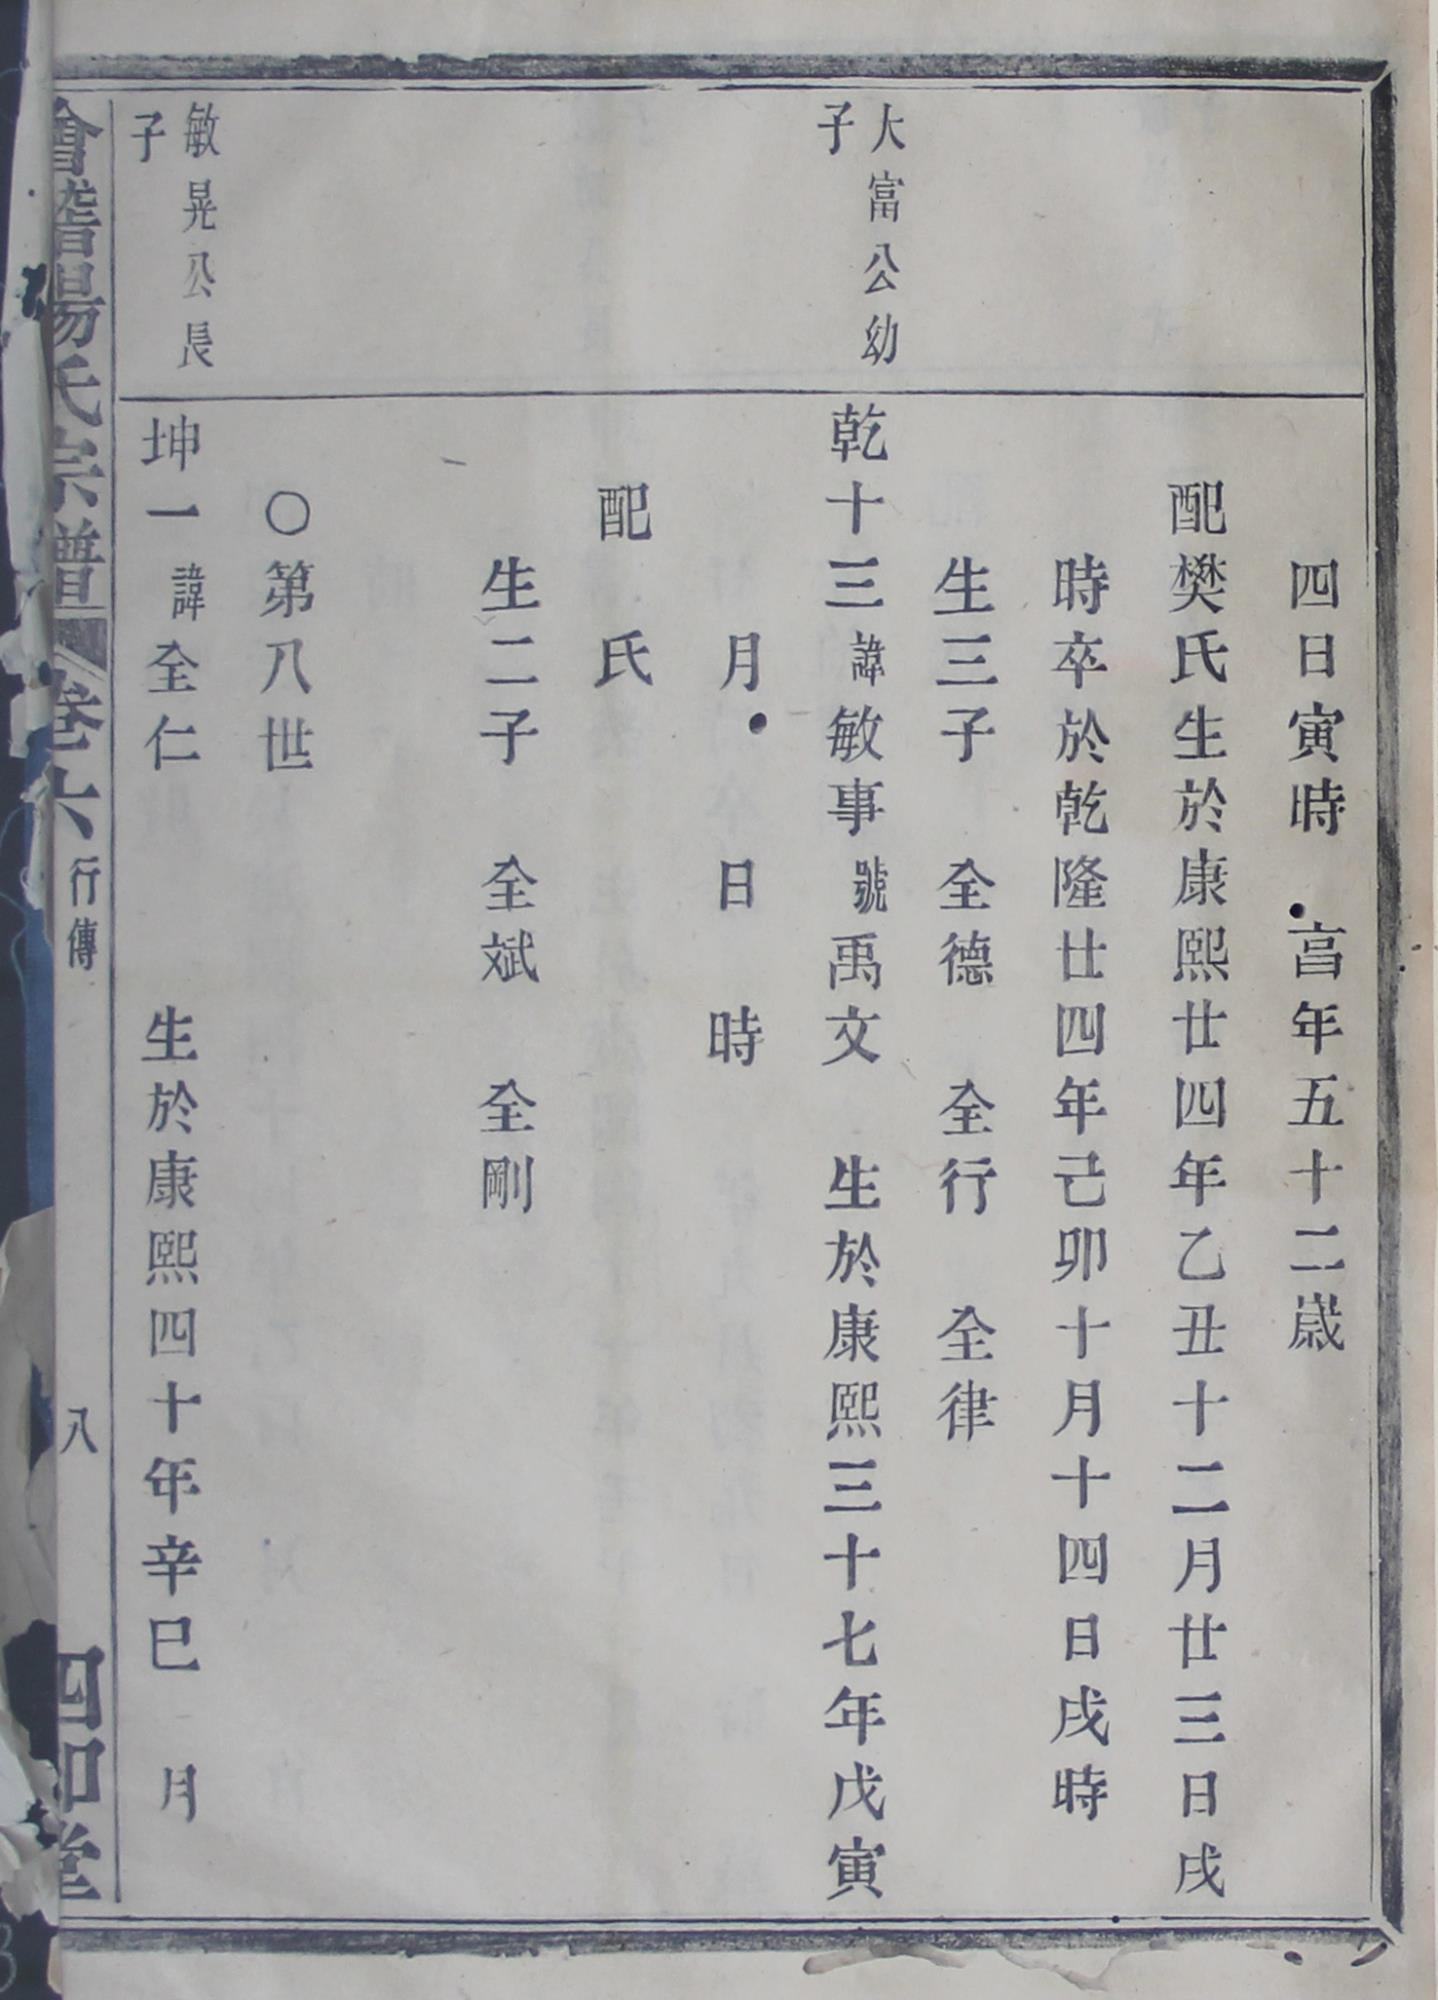 四日寅時　享年五十二歲
配樊氏生於康熙廿四年乙丑十二月廿三日戌
時卒於乾隆廿四年己卯十月十四日戌時
生三子　全德　全行　全律
大富公幼
子
乾十三諱敏事號禹文　生於康熙三十七年戊寅
月　日　時
配　氏
生二子　全斌　全剛
○第八世
敏晃公長
子
坤一諱全仁　生於康熙四十年辛巳　月
會稽楊氏宗譜　卷六　行傳　八　四知堂